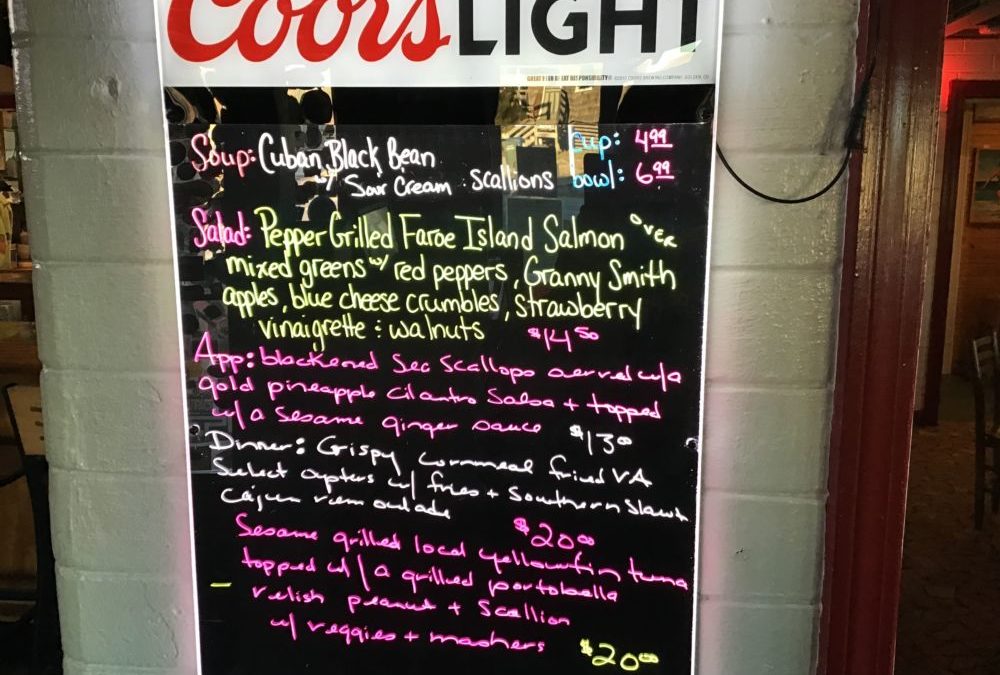 Coors LIGHT
GREAT BEER GREAT RESPONSIBILITY® ©2017 COORS BREWING COMPANY, GOLDEN, CO
Soup: Cuban Black Bean Cup: 4.99
w/ Sour Cream : Scallions bowl: 6.99
Salad: Pepper Grilled Faroe Island Salmon over
mixed greens w/ red peppers, Granny Smith
apples, blue cheese crumbles, strawberry
vinaigrette : walnuts $14.50
App: blackened Sea Scallops served w/a
gold pineapple cilantro Salsa + topped
w/a Sesame ginger sauce $13.00
Dinner: Crispy cornmeal fried VA
Select oysters w/ fries + Southern Slaw +
Cajun remoulade
$20.00
Sesame grilled local yellowfin tuna
topped w/a grilled portobella
relish peanut + Scallion
w/ veggies + mashers
$20.00